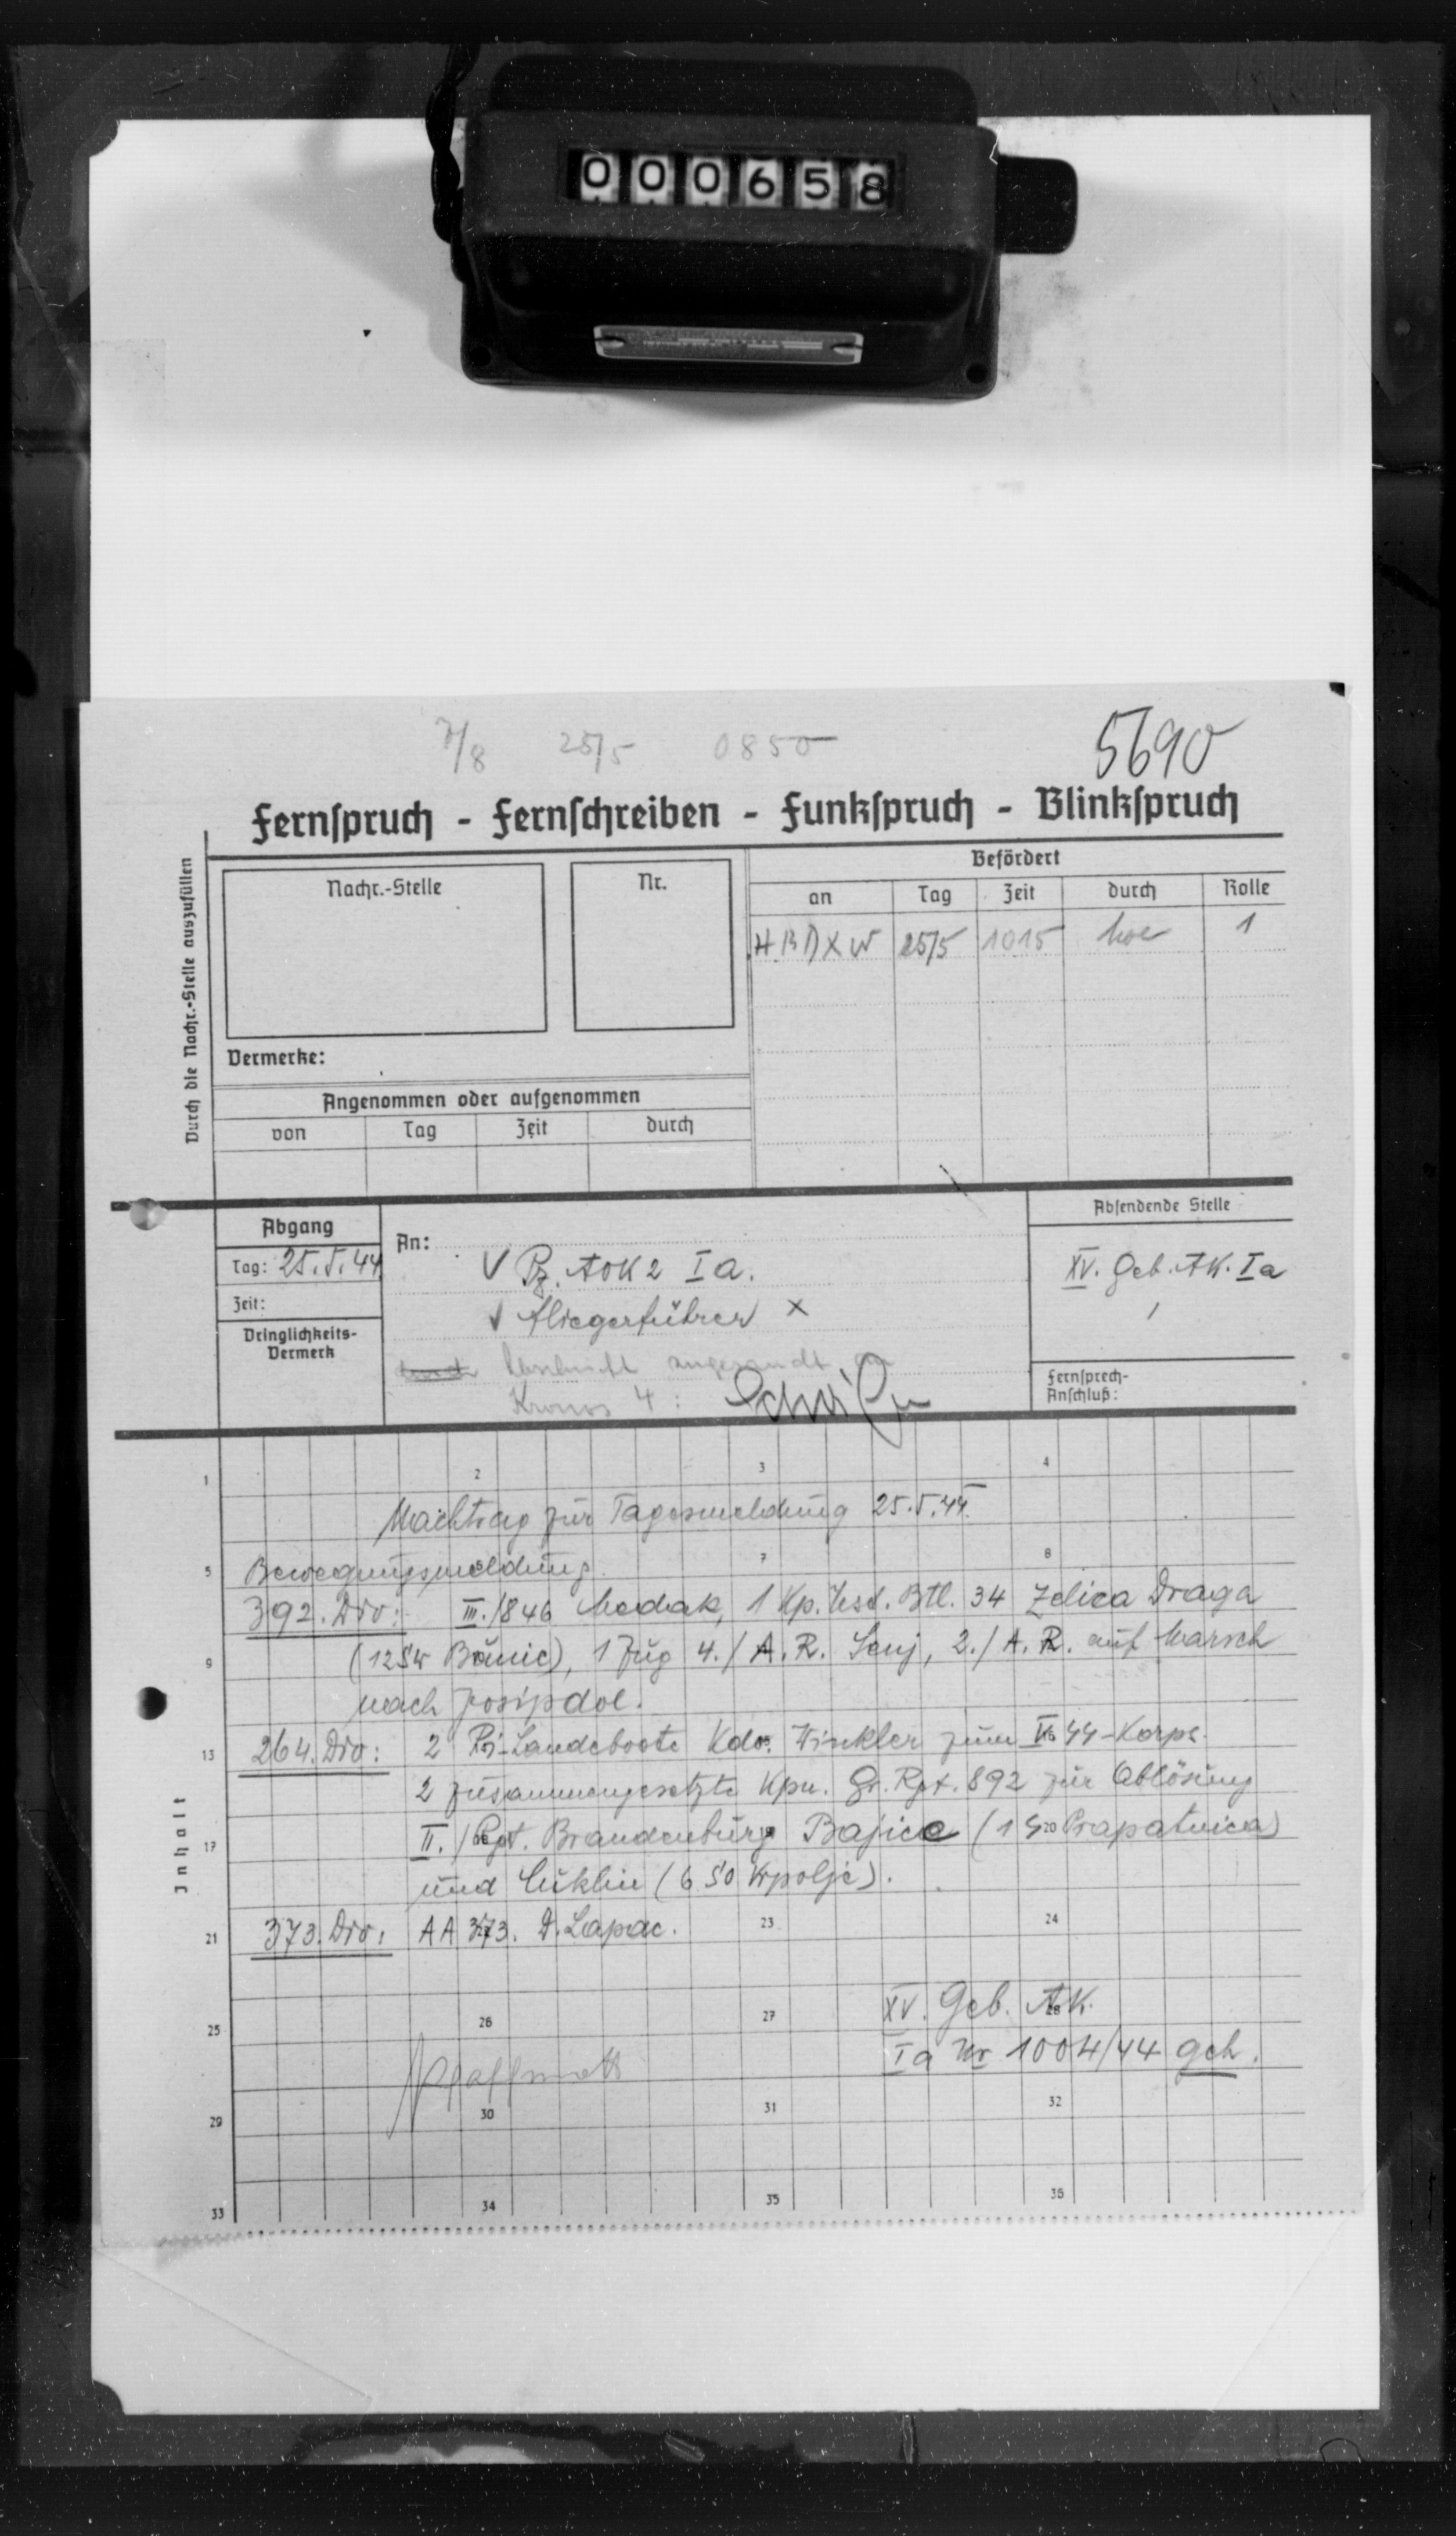 000658
7/8 25/5 0850
5690
Fernspruch - Fernschreiben - Funkspruch - Blinkspruch
Durch die Nachr.-Stelle auszufüllen
Nachr.-Stelle
Nr.
Befördert
an Tag Zeit durch Rolle
HBDXW 25/5 1015 1
Vermerke:
Angenommen oder aufgenommen
von Tag Zeit durch
Abgang
Tag: 25.5.44
Zeit:
Dringlichkeits-
Vermerk
An:
V Pz. AOK 2 Ia.
V Fliegerführer x
Abschrift angesandt
Kronos 4:
Absendende Stelle
XV. Geb. AK. Ia
Fernsprech-
Anschluß:
Inhalt
1 2 3 4
Nachtrag zur Tagesmeldung 25.5.44.
5 7 8
Bewegungsmeldung.
392. Div: III./846 Medak, 1 Kp. Btl. 34 Zelica Draga
9
(12 SW ), 1 Zug 4./A.R. Senj, 2./A.R. auf Marsch
nach Josipdol.
13
264. Div: 2 Pi-Landeboote Kdo. Winkler zum V. SS-Korps.
2 zusammengesetzte Kpn. Gr. Rgt. 892 zur Ablösung
17
II./Rgt. Brandenburg Bajice (1 SO Prapatnica)
und (6 SO Krpolje).
21 23 24
373. Div: AA 373. D. Lapac.
25 26 27
XV. Geb. AK.
Ia Nr 1004/44 geh.
29 30 31 32
33 34 35 36